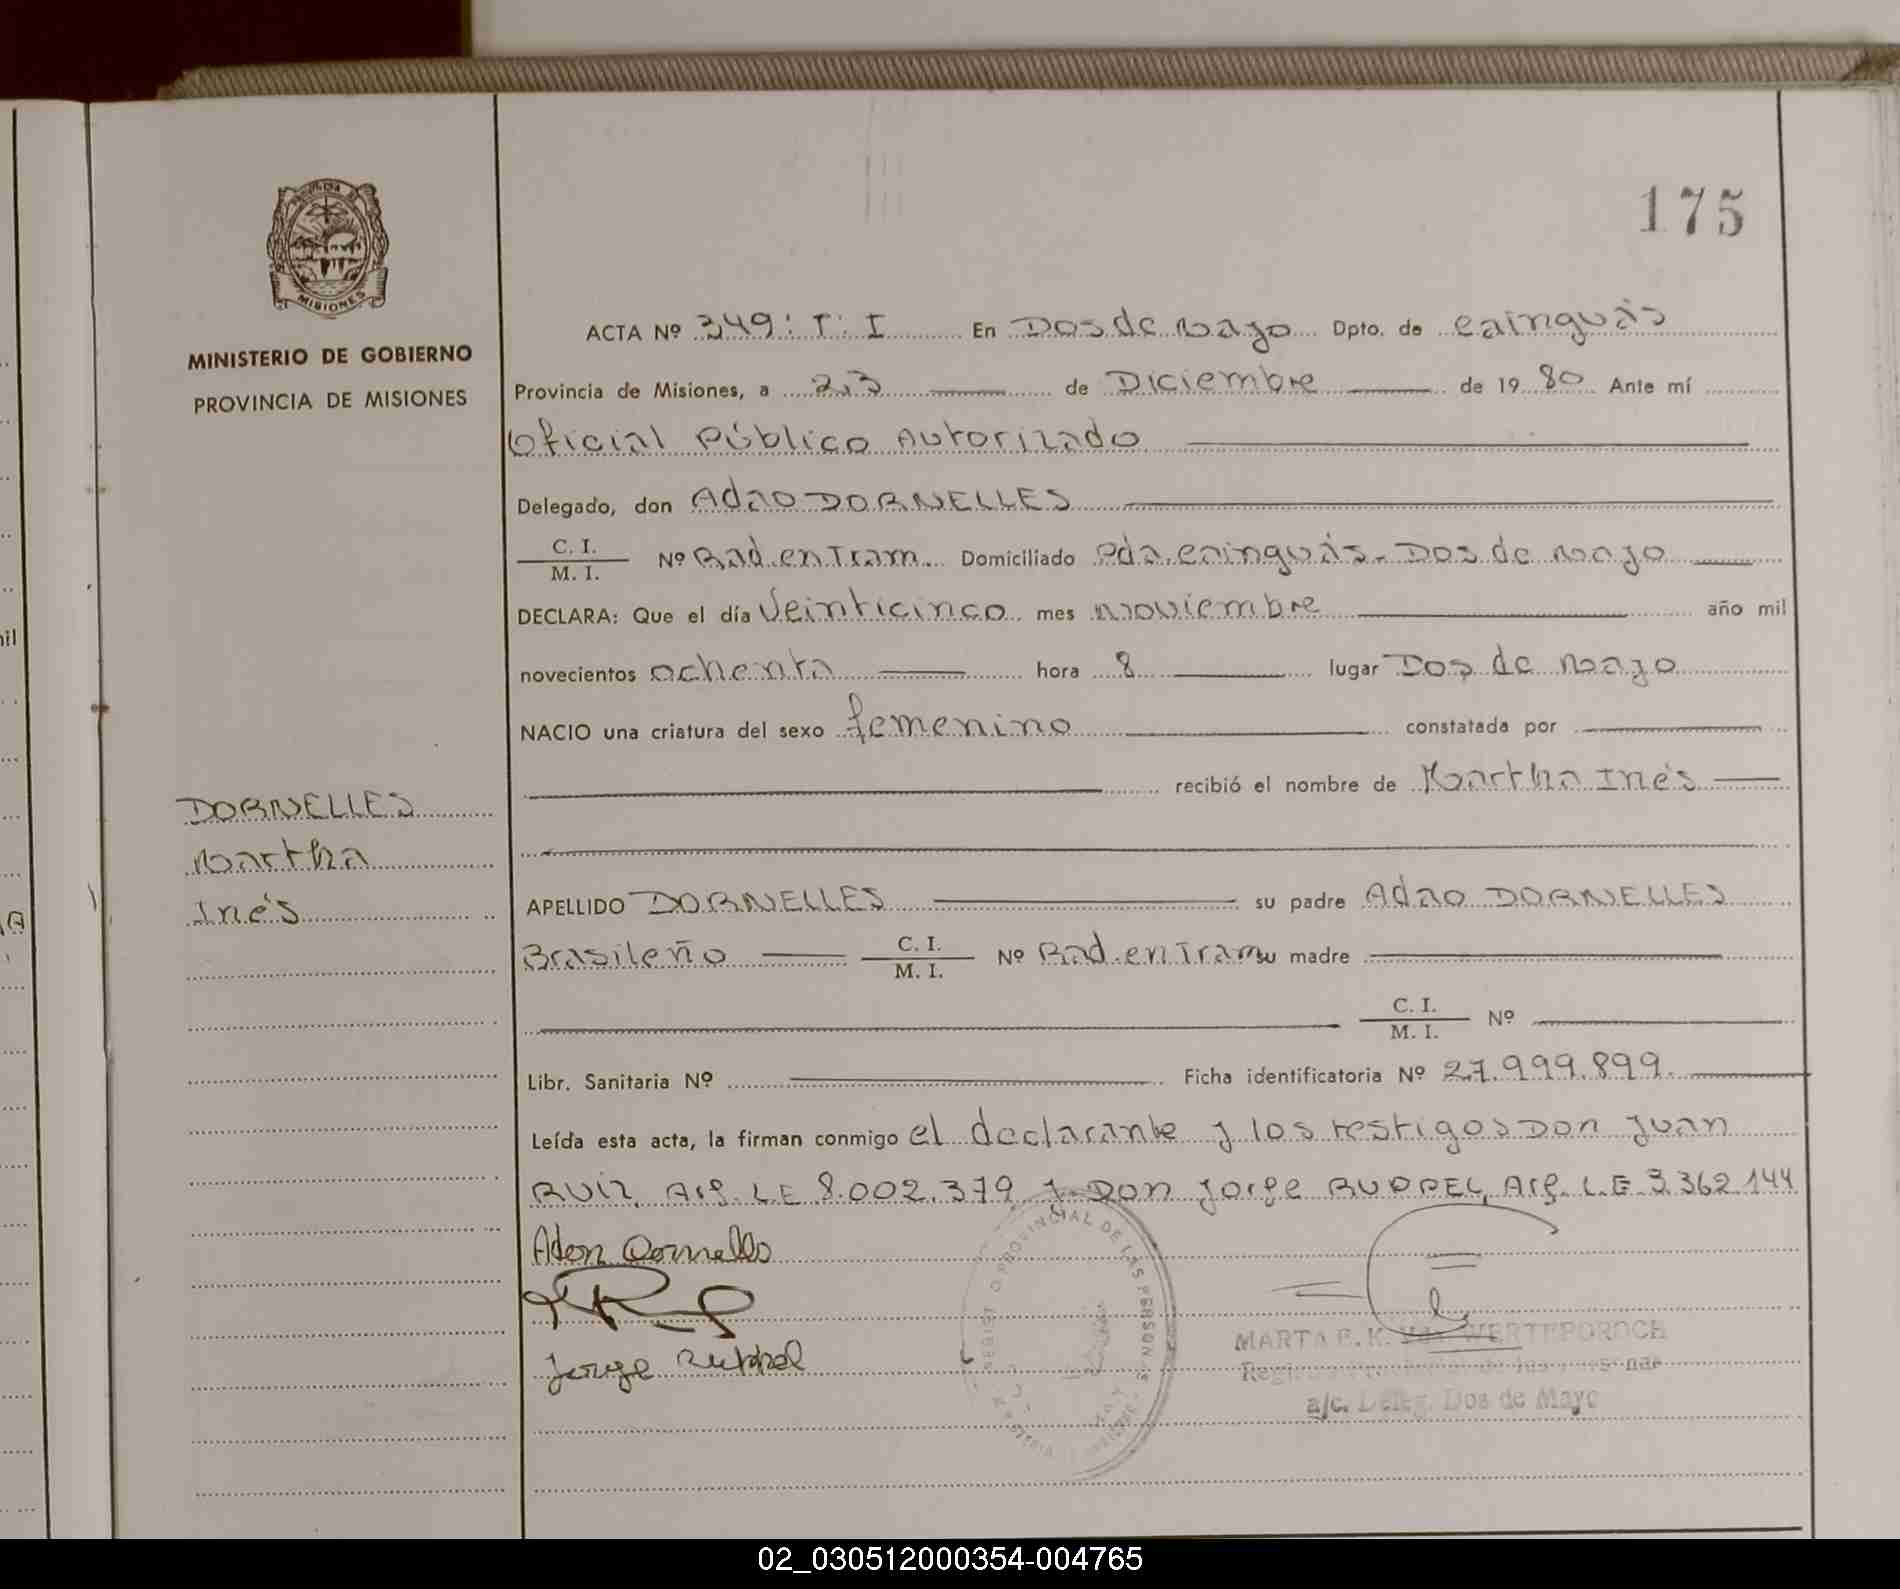 175
MINISTERIO DE GOBIERNO
PROVINCIA DE MISIONES
MISIONES
ACTA Nº 349: T: I En Dos de Mayo Dpto. de Cainguás
Provincia de Misiones, a 23 de Diciembre de 1980 Ante mí
Oficial Público Autorizado
Delegado, don Adao DORNELLES
C. I.
M. I. Nº Rad.en Tram. Domiciliado Pda.Cainguás-Dos de Mayo
DECLARA: Que el día Veinticinco mes Noviembre año mil
novecientos ochenta hora 8 lugar Dos de Mayo
NACIO una criatura del sexo femenino constatada por
recibió el nombre de Martha Inés
DORNELLES
Martha
Inés
APELLIDO DORNELLES su padre Adao DORNELLES
Brasileño C. I.
M. I. Nº Rad.en Tram su madre
C. I.
M. I. Nº
Libr. Sanitaria Nº Ficha identificatoria Nº 27.999.899.
Leída esta acta, la firman conmigo el declarante y los testigos Don Juan
RUIZ, Arg. LE 8.002.379 y Don Jorge RUPPEL, Arg. L.E 3362144
Jorge Ruppel
PROVINCIAL DE LAS PERSON
MARTA E. K.
a/c. Deleg. Dos de Mayo
02_030512000354-004765